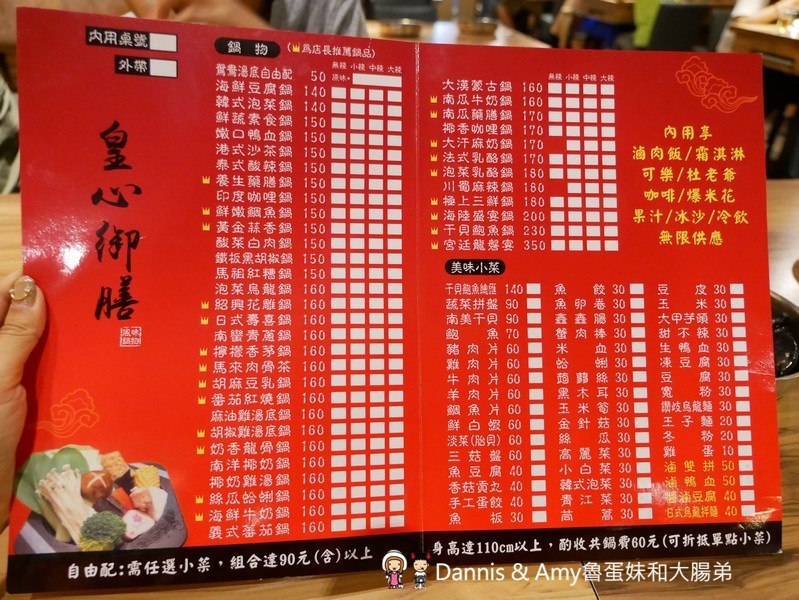 內用桌號
外帶
皇心御膳
鍋物 (為店長推薦鍋品)
無辣 小辣 中辣 大辣
鴛鴦湯底自由配 50 原味+
海鮮豆腐鍋 140
韓式泡菜鍋 140
鮮蔬素食鍋 150
嫩口鴨血鍋 150
港式沙茶鍋 150
泰式酸辣鍋 150
養生藥膳鍋 150
印度咖哩鍋 150
鮮嫩鯛魚鍋 150
黃金蒜香鍋 150
酸菜白肉鍋 150
鐵板黑胡椒鍋 150
馬祖紅糟鍋 150
泡菜烏龍鍋 160
紹興花雕鍋 160
日式壽喜鍋 160
南蠻青蔥鍋 160
檸檬香茅鍋 160
馬來肉骨茶 160
胡麻豆乳鍋 160
番茄紅燒鍋 160
麻油雞湯底鍋 160
胡椒雞湯底鍋 160
奶香龍骨鍋 160
南洋椰奶鍋 160
椰奶雞湯鍋 160
絲瓜蛤蜊鍋 160
海鮮牛奶鍋 160
義式蕃茄鍋 160
無辣 小辣 中辣 大辣
大漢蒙古鍋 160
南瓜牛奶鍋 160
南瓜藥膳鍋 170
椰香咖哩鍋 170
大汗麻奶鍋 170
法式乳酪鍋 170
泡菜乳酪鍋 180
川蜀麻辣鍋 180
極上三鮮鍋 180
海陸盛宴鍋 200
干貝鮑魚鍋 230
宮廷龍蝦宴 350
內用享
滷肉飯/霜淇淋
可樂/杜老爺
咖啡/爆米花
果汁/冰沙/冷飲
無限供應
美味小菜
干貝鮑魚總匯 140 魚餃 30 豆皮 30
蔬菜拼盤 90 魚卵卷 30 玉米 30
南美干貝 90 鑫鑫腸 30 大甲芋頭 30
鮑魚 70 蟹肉棒 30 甜不辣 30
豬肉片 60 米血 30 生鴨血 30
雞肉片 60 蛤蜊 30 凍豆腐 30
牛肉片 60 蒟蒻絲 30 豆腐 30
羊肉片 60 黑木耳 30 寬粉 30
鯛魚片 60 玉米筍 30 讚岐烏龍麵 30
鮮白蝦 60 金針菇 30 王子麵 20
淡菜(貽貝) 60 絲瓜 30 冬粉 20
三菇盤 60 高麗菜 30 雞蛋 10
魚豆腐 40 小白菜 30 滷雙拼 50
香菇貢丸 40 韓式泡菜 30 滷鴨血 40
手工蛋餃 40 青江菜 30 滷豆腐 40
魚板 30 茼蒿 30 日式烏龍拌麵 40
自由配:需任選小菜，組合達90元(含)以上
身高達110cm以上，酌收共鍋費60元(可折抵單點小菜)
Dannis & Amy魯蛋妹和大腸弟